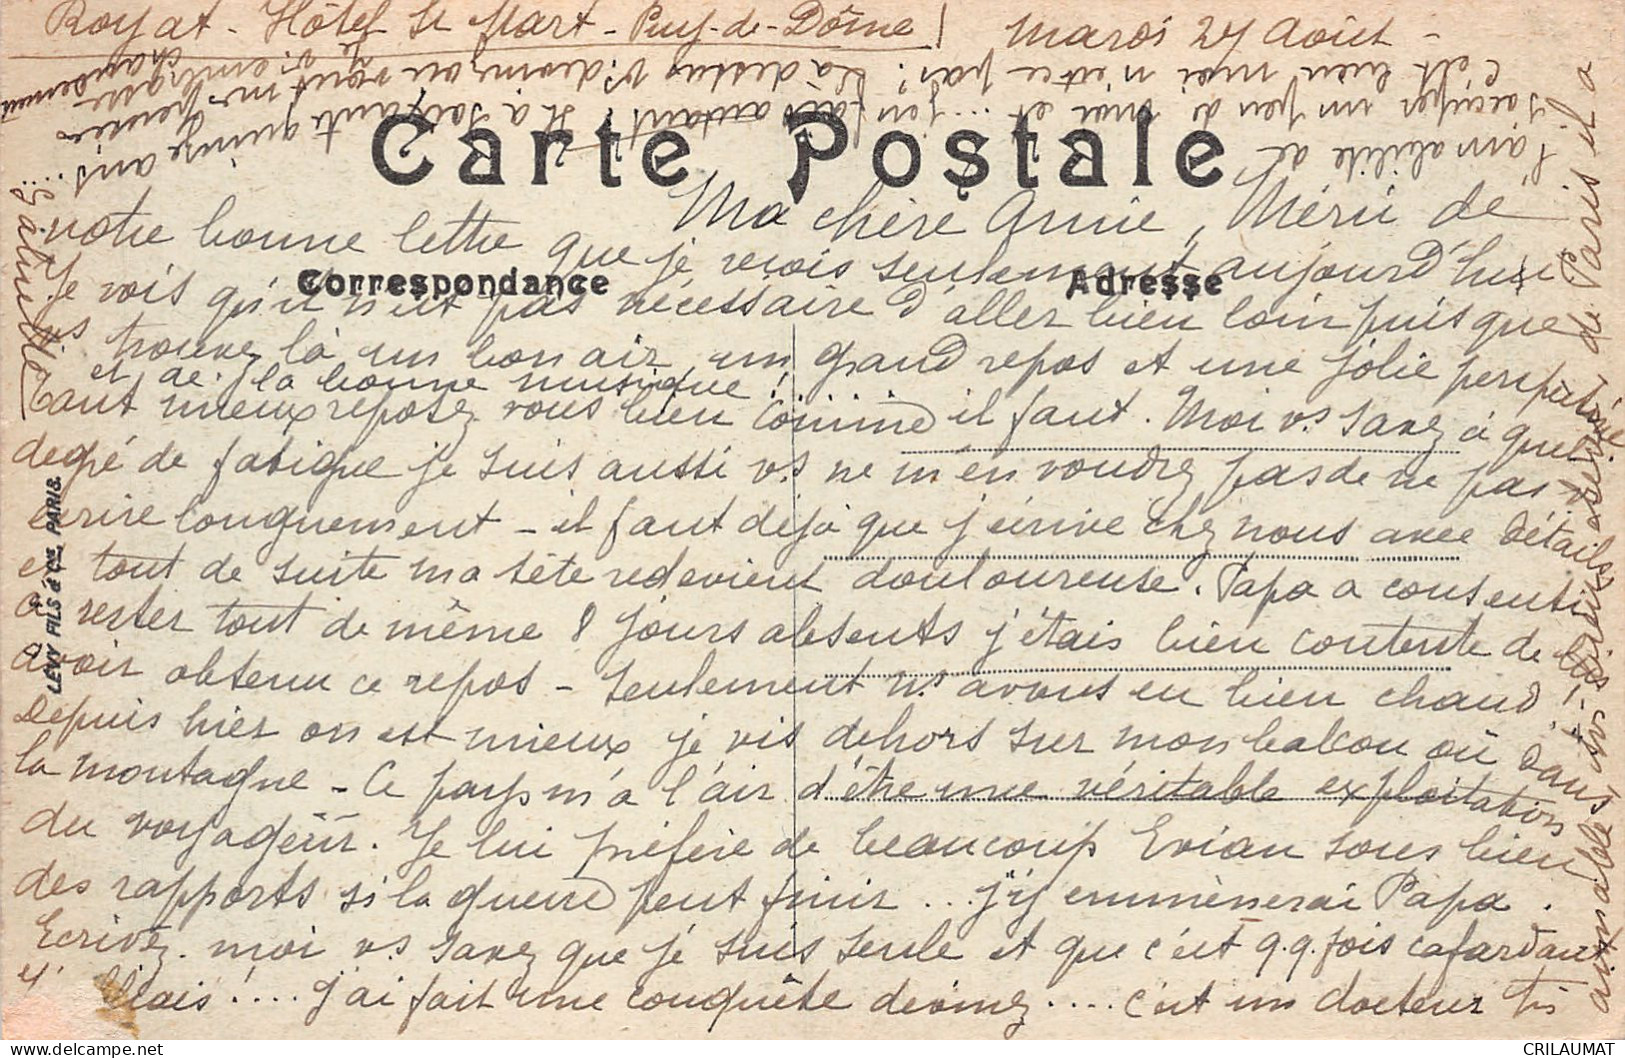 Royat - Hôtel St Mart - Puy-de-Dôme
Mardi 27 Août -
Carte Postale
Correspondance
Adresse
LEVY FILS & Cie, PARIS.
Ma chère Annie, Merci de
votre bonne lettre que je reçois seulement aujourd'hui
Je vois qu'il n'est pas nécessaire d'aller bien loin puisque
vs trouvez là un bon air un grand repos et une jolie perspective
et de la bonne musique !
Tant mieux reposez vous bien comme il faut. Moi vs savez à quel
degré de fatigue je suis aussi vs ne m'en voudrez pas de ne pas vs
écrire longuement - il faut déjà que j'écrive chez nous avec détails
et tout de suite ma tête redevient douloureuse. Papa a consenti
à rester tout de même 8 jours absents j'étais bien contente de lui
avoir obtenu ce repos - seulement ns avons eu bien chaud !
Depuis hier on est mieux je vis dehors sur mon balcon où dans
la montagne - Ce pays m'a l'air d'être une véritable exploitation
du voyageur. Je lui préfère de beaucoup Evian sous bien
des rapports si la guerre peut finir... j'y emmènerai Papa.
Ecrivez. moi vs savez que je suis seule et que c'est q.q.fois cafardant
Mais !.... J'ai fait une conquête devinez.... c'est un docteur très
aimable, très sérieux, réservé, de Paris il a
l'amabilité de
s'occuper un peu de moi et ... j'en fais autant, Il a soixante quinze ans...
c'est bien moi n'est ce pas ? Là dessus vs devinez au vont mes pensées
Je vs embrasse